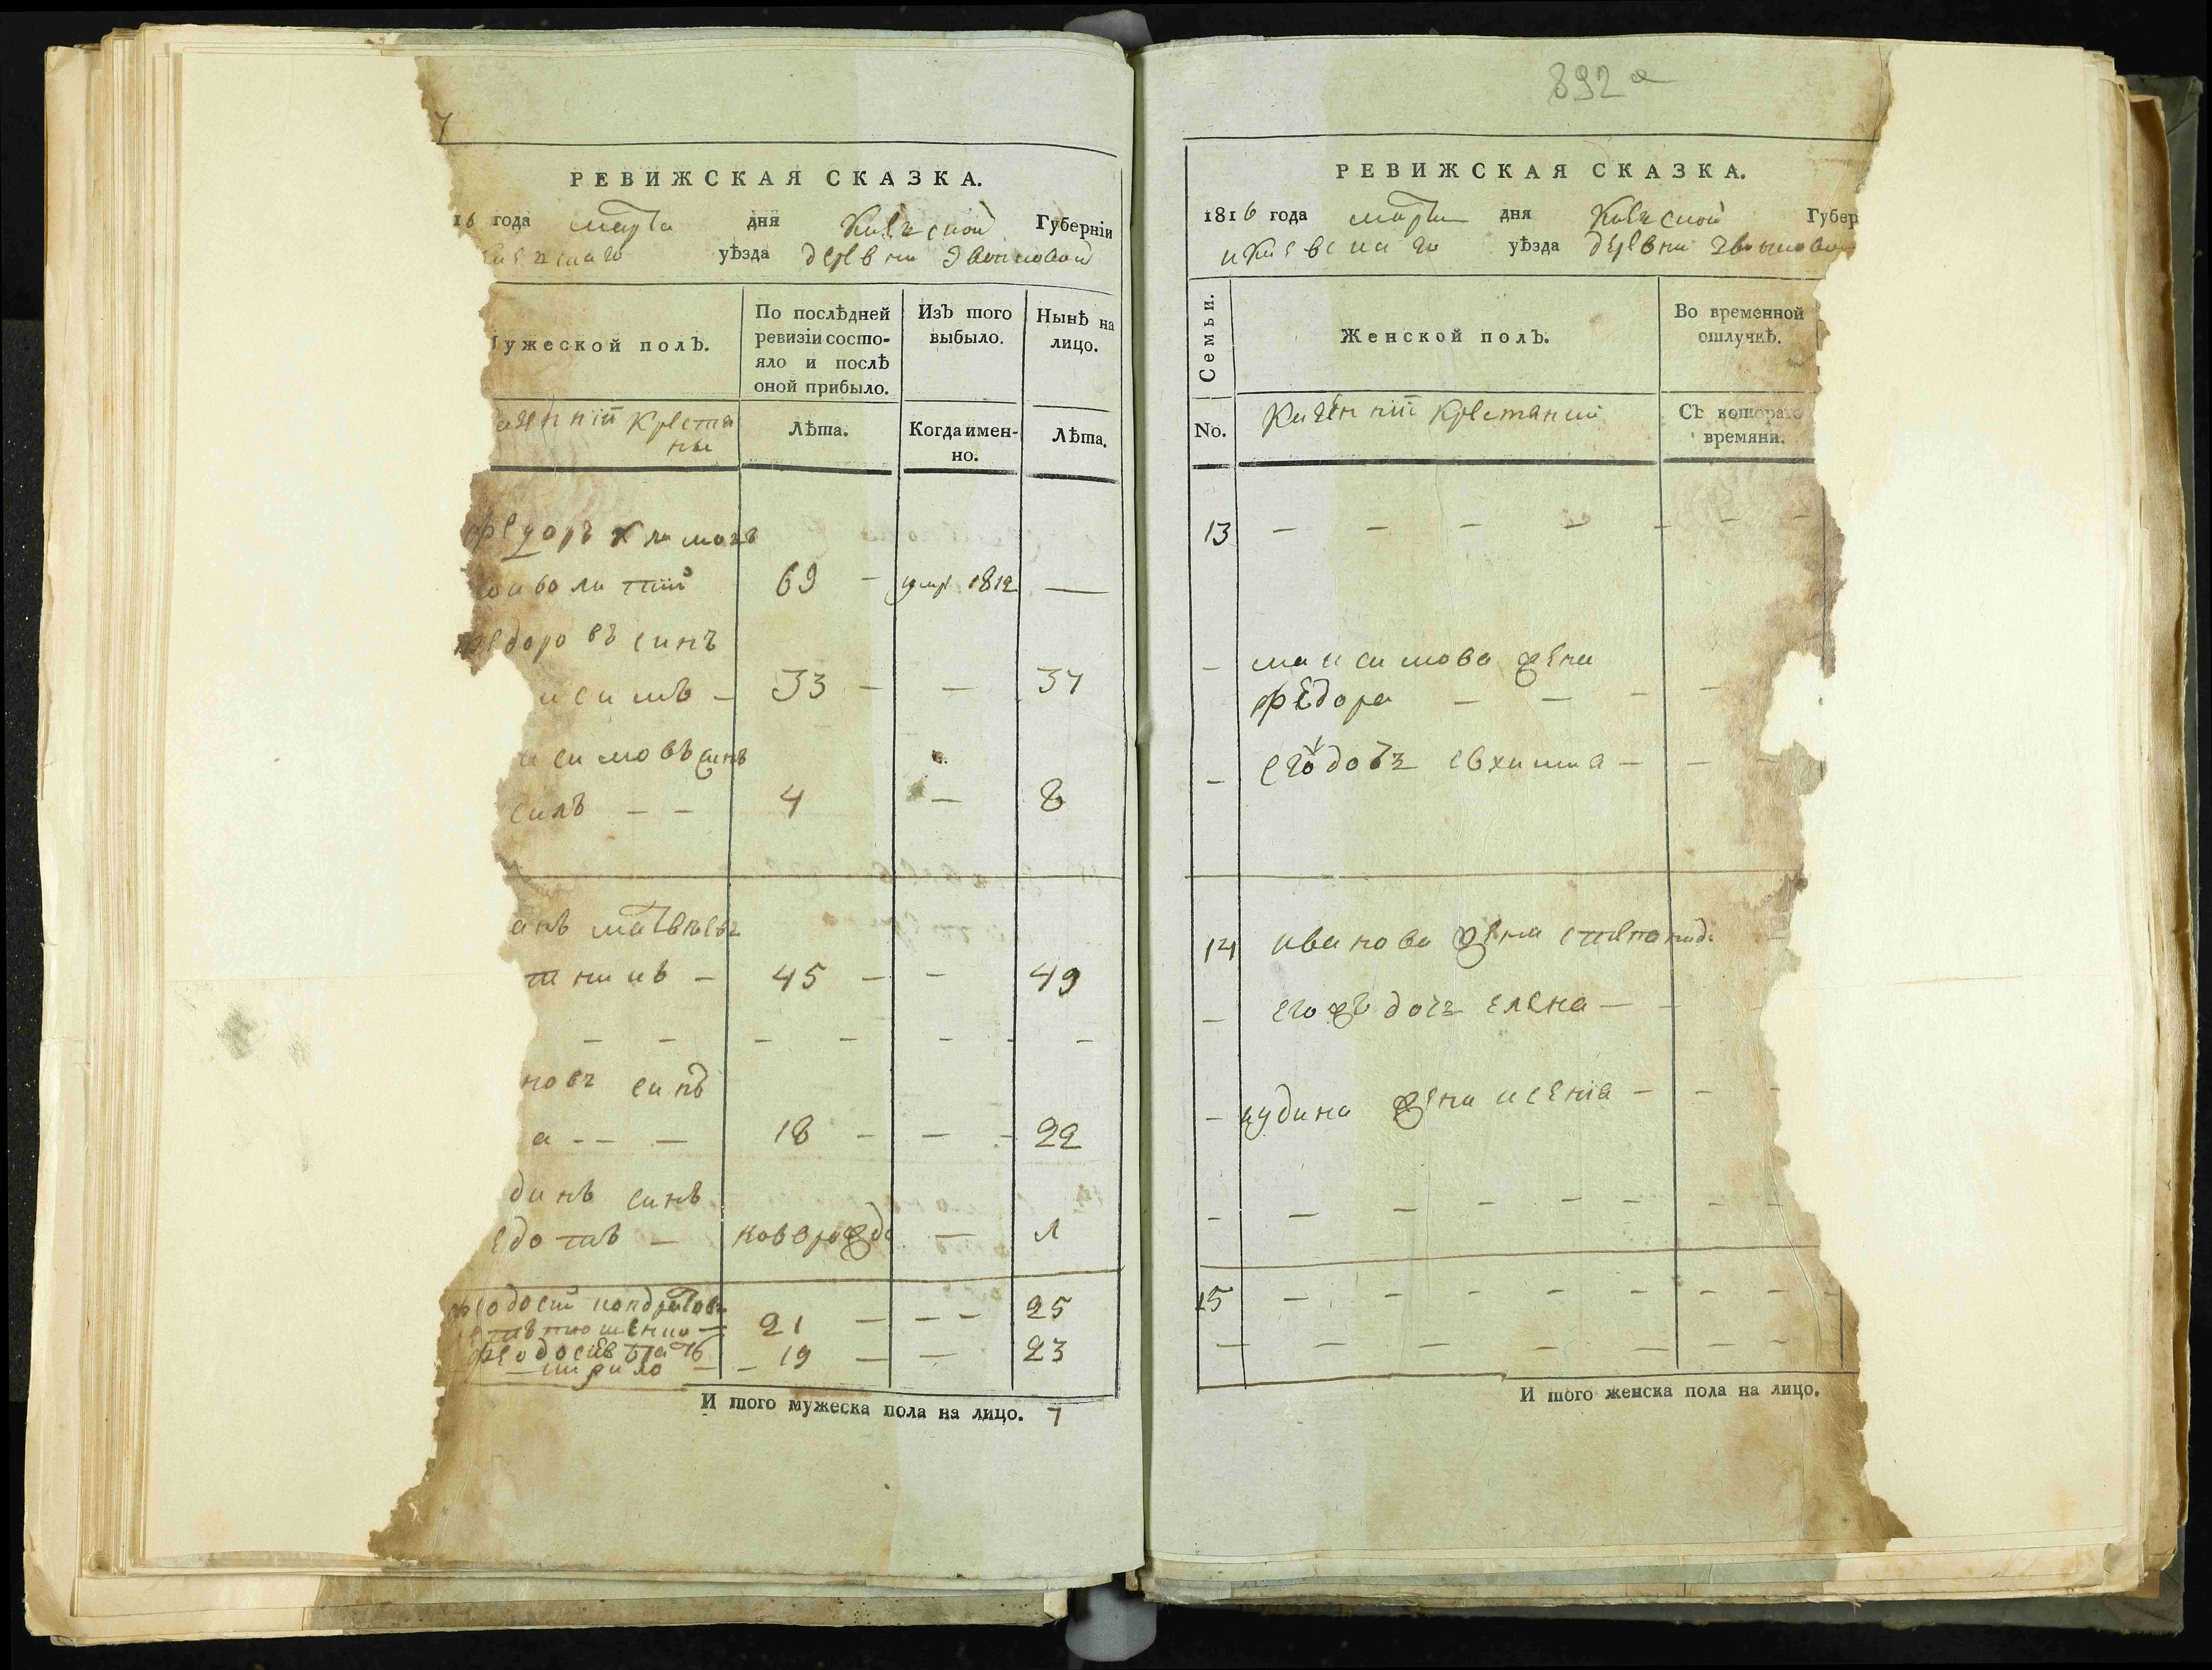 7
РЕВИЖСКАЯ СКАЗКА.
16 года марта дня Киевской Губерніи
уѣзда деревни Звонковой
ужеской полЪ.
По послѣдней ревизіи состояло и послѣ оной прибыло.
ИзЪ того выбыло.
Нынѣ на лицо.
крестяне
Лѣта.
Когда именно.
Лѣта.
федоръ климовъ
69 - умр 1812 —
федоровъ синъ
ксимъ - 33 - - 37
ксимовъ синъ
силъ - - 4 - 8
анъ матвѣевъ
45 - - 49
- - - - - - -
новъ синъ
а - - - 18 - - - 22
динъ синъ
едотъ - новорожде - л
феодосий кондратовъ
21 - - - 25
феодосиевъ братъ
кирило - - 19 - - 23
И того мужеска пола на лицо. 7
892 а
РЕВИЖСКАЯ СКАЗКА.
1816 года марта дня Киевской Губер
уѣзда деревни
Семьи.
Женской полЪ.
Во временной отлучкѣ.
No.
СЪ котораго времяни.
13 - - - - - - -
- максимова жена
федора - - - -
- его дочь евхима - - -
14 иванова жена степанид
- его жъ дочь елена - -
- юдина жена ксеніа - - -
- - - - - -
15 - - - - - - - -
- - - - - - - -
И того женска пола на лицо.